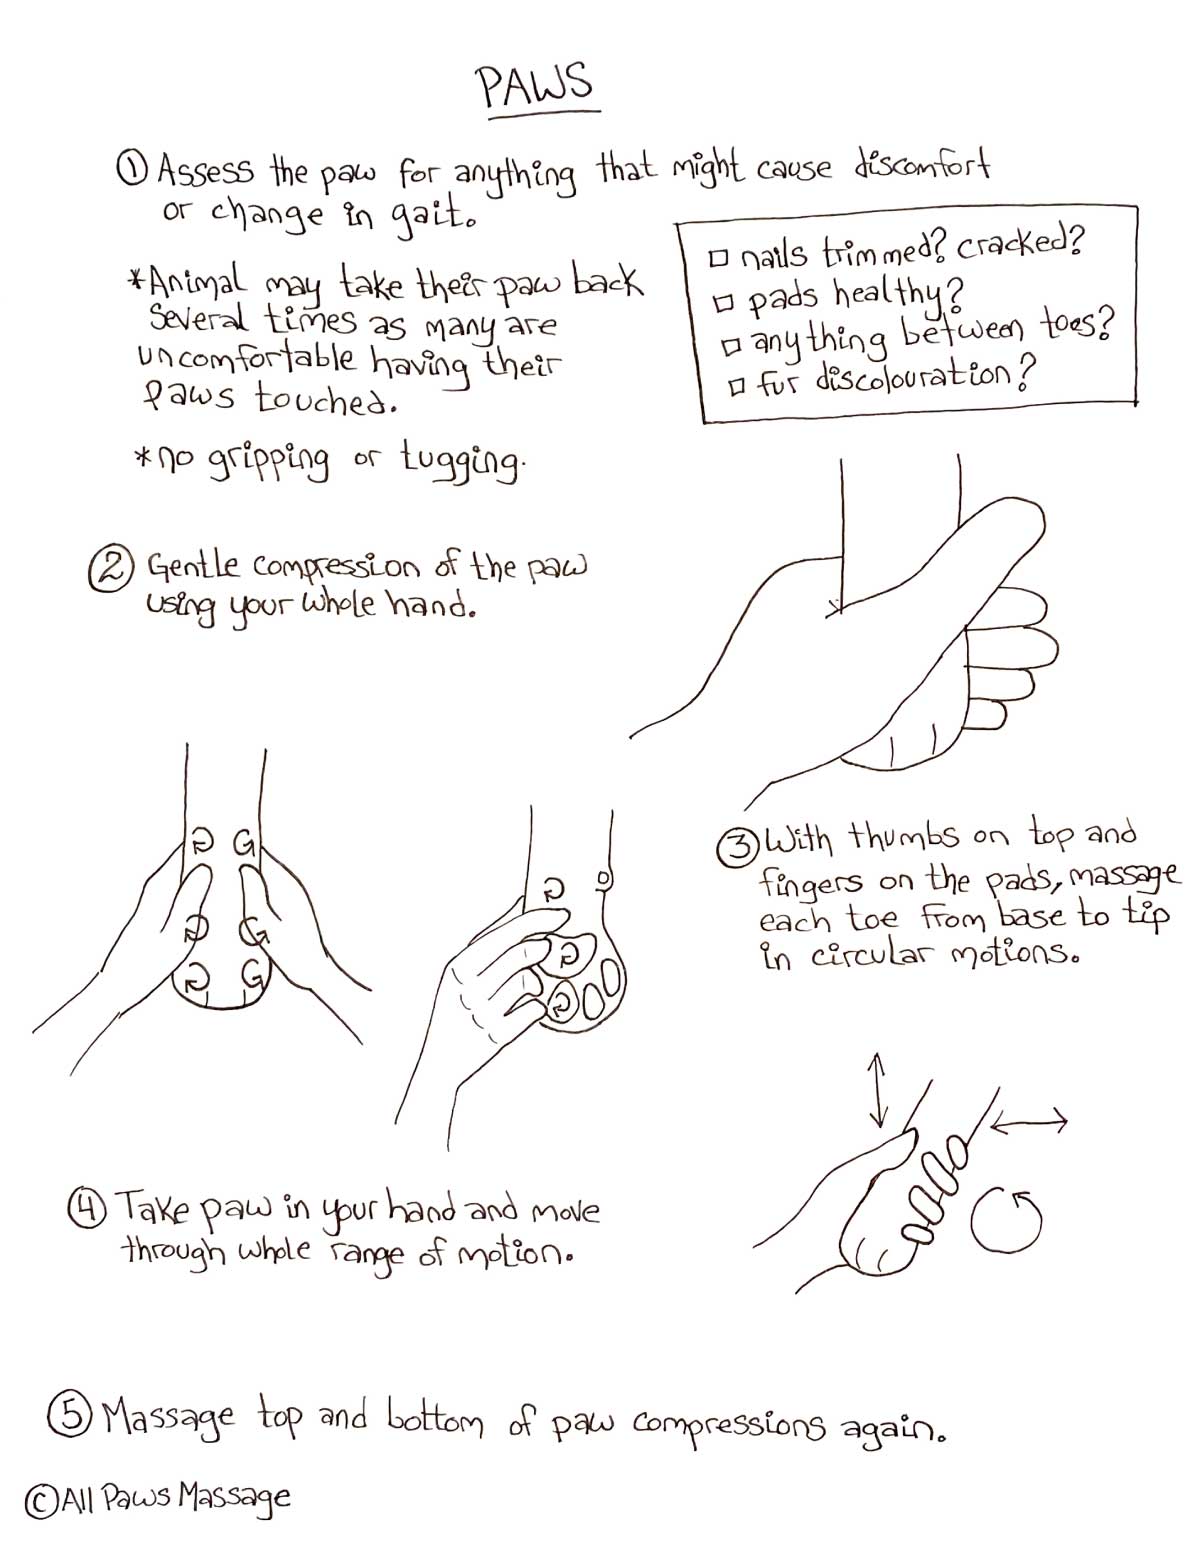 PAWS
① Assess the paw for anything that might cause discomfort
or change in gait.
*Animal may take their paw back
several times as many are
uncomfortable having their
paws touched.
*no gripping or tugging.
☐ nails trimmed? cracked?
☐ pads healthy?
☐ anything between toes?
☐ fur discolouration?
② Gentle compression of the paw
using your whole hand.
③ With thumbs on top and
fingers on the pads, massage
each toe from base to tip
in circular motions.
④ Take paw in your hand and move
through whole range of motion.
⑤ Massage top and bottom of paw compressions again.
© All Paws Massage